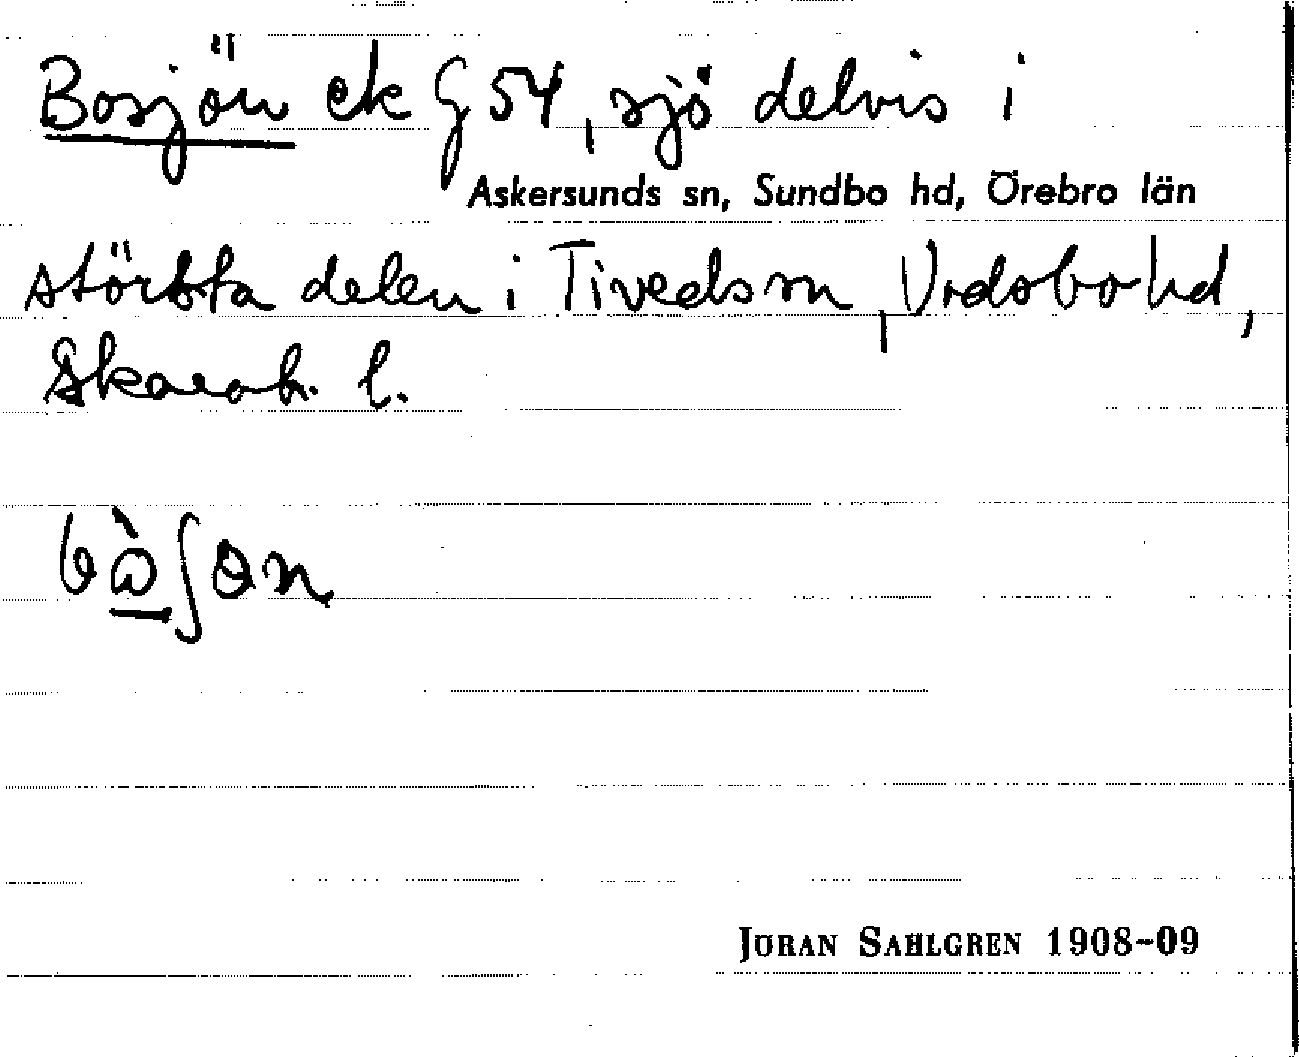 Bosjön ek G 54, sjö delvis i
Askersunds sn, Sundbo hd, Örebro län
största delen i Tiveds sn, Vadsbo hd,
Skarab. l.
bὼʃɷn
JÖRAN SAHLGREN 1908-09